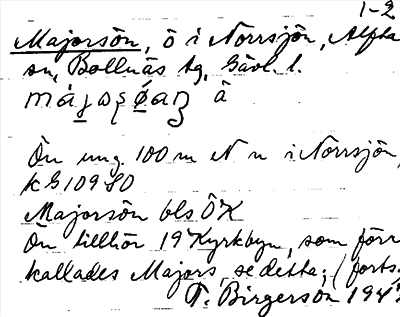 1-2
Majorsön, ö i Norrsjön, Alfta
sn, Bollnäs tg, Gävl. l.
Ön ung. 100 m N n i Norrsjön,
k G 109 SO
Majorsön bls ÖK
Ön tillhör 19 Kyrkbyn, som förr
kallades Majors, se detta; (forts.
T. Birgerson 194